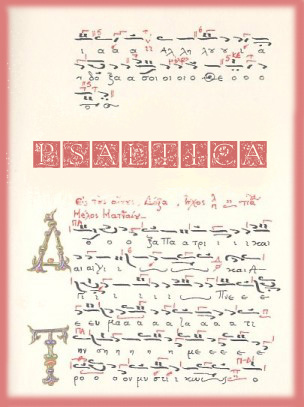 ι α α α Αλ λη λου ι α
η δο ξα α σοι οι οι ο Θε ο ο ο
ο ο
PSALTICA
Δόξα, ἦχος
Μέλος Ματθαίου
Δ ο ο ο ξα Πα α τρι ι ι και
αι αι Υι ι ι και Α
ι ι ι ι Πνε ε ε
ε ευ μα α α α α α α τι
Τ ην ση η η η με ε ε ε
ρο ο ον μυ στι ι κως